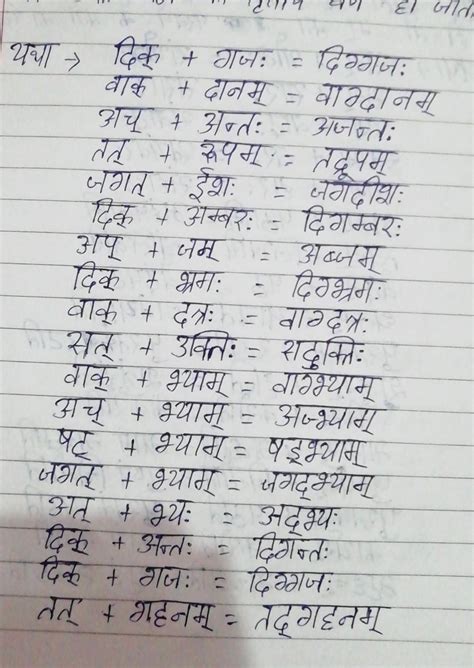 तृतीय वर्ण हो जाता
यथा → दिक् + गजः = दिग्गजः
वाक् + दानम् = वाग्दानम्
अच् + अन्तः = अजन्तः
तत् + रूपम् = तद्रूपम्
जगत् + ईशः = जगदीशः
दिक् + अम्बरः = दिगम्बरः
अप् + जम् = अब्जम्
दिक् + भ्रमः = दिग्भ्रमः
वाक् + दत्रः = वाग्दत्रः
सत् + उक्तिः = सदुक्तिः
वाक् + भ्याम् = वाग्भ्याम्
अच् + भ्याम् = अज्भ्याम्
षट् + भ्याम् = षड्भ्याम्
जगत् + भ्याम् = जगद्भ्याम्
अत् + भ्यः = अद्भ्यः
दिक् + अन्तः = दिगन्तः
दिक् + गजः = दिग्गजः
तत् + गहनम् = तद्गहनम्